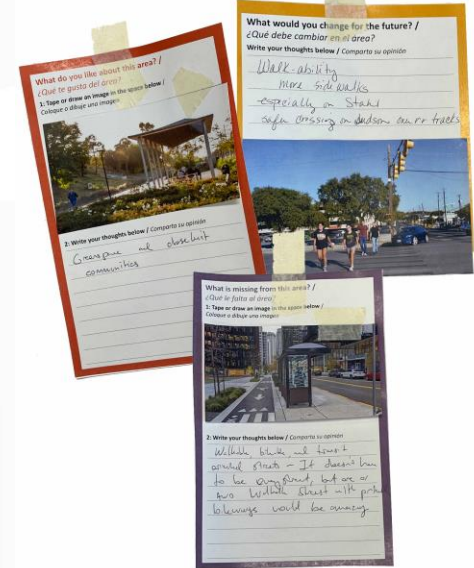 What do you like about this area? /
¿Qué te gusta del área?
1: Tape or draw an image in the space below /
Coloque o dibuje una imagen
2: Write your thoughts below / Comparta su opinión
Greenspace and close knit
communities
What would you change for the future? /
¿Qué debe cambiar en el área?
Write your thoughts below / Comparta su opinión
Walk-ability
more sidewalks
especially on Stahl
safer crossing on Judson near rr tracks
What is missing from this area? /
¿Qué le falta al área?
1: Tape or draw an image in the space below /
Coloque o dibuje una imagen
2: Write your thoughts below / Comparta su opinión
Walkable and transit
oriented streets - It doesn't have
to be every street, but one or
two walkable street with
bikeways would be amazing